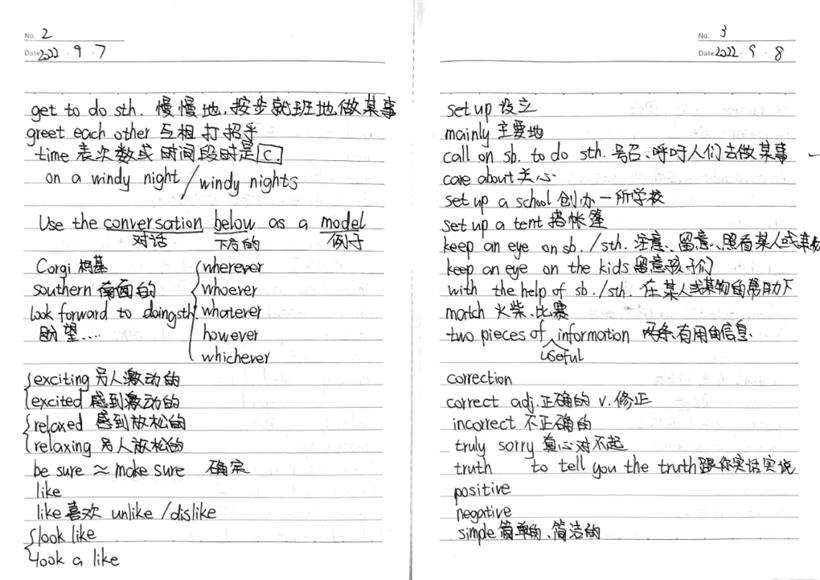 No. 2
Date 2022 . 9 . 7
get to do sth. 慢慢地,按步就班地做某事
greet each other 互相打招乎
time 表次数或时间段时是[C.]
on a windy night / windy nights
Use the conversation below as a model
对话 下面的 例子
Corgi 柯基
southern 南面的
look forward to doing sth.
盼望....
wherever
whoever
whatever
however
whichever
exciting 另人激动的
excited 感到激动的
relaxed 感到放松的
relaxing 另人放松的
be sure ≈ make sure 确定
like
like 喜欢 unlike / dislike
look like
look a like
No. 3
Date 2022 . 9 . 8
set up 设立
mainly 主要地
call on sb. to do sth. 号召、呼吁人们去做某事
care about 关心
set up a school 创办一所学校
set up a tent 搭帐篷
keep an eye on sb. / sth. 注意、留意、照看某人或某物
keep an eye on the kids 留意孩子们
with the help of sb. / sth. 在某人或某物的帮助下
match 火柴、比赛
two pieces of information 两条有用的信息
useful
correction
correct adj. 正确的 v. 修正
incorrect 不正确的
truly sorry 真心对不起
truth to tell you the truth 跟你实话实说
positive
negative
simple 简单的、简洁的